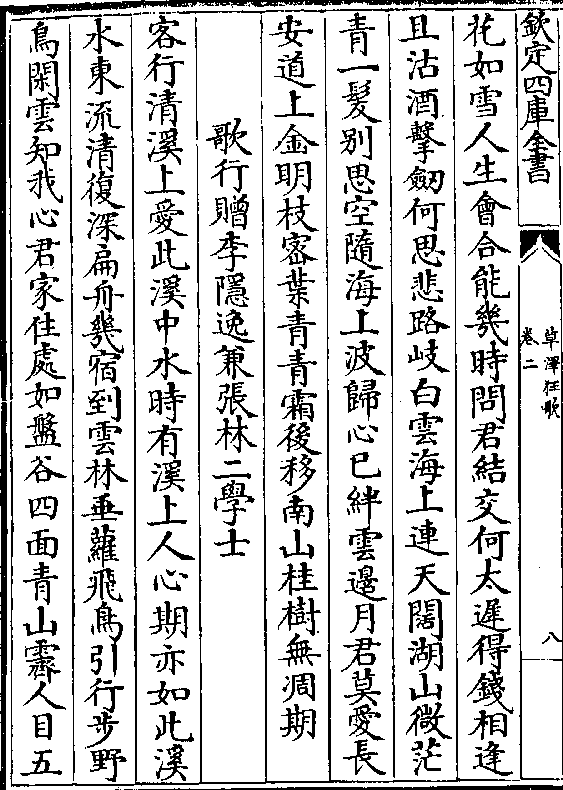 欽定四庫全書
草澤狂歌
卷二
八
花如雪人生會合能幾時問君結交何太遲得錢相逢
且沽酒擊劒何思悲路岐白雲海上連天闊湖山微茫
青一髮别思空隨海上波歸心已絆雲邊月君莫愛長
安道上金明枝宻葉青青霜後移南山桂樹無凋期
歌行贈李隱逸兼張林二學士
客行清溪上愛此溪中水時有溪上人心期亦如此溪
水東流清復深扁舟幾宿到雲林垂蘿飛鳥引行步野
鳥閑雲知我心君家住處如盤谷四面青山霽人目五